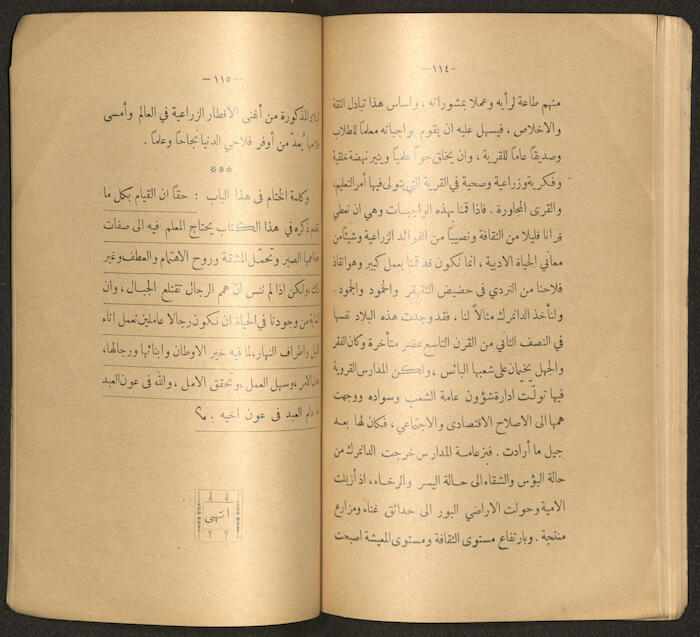 - ١١٤ -
منهم طاعة لرأيه وعملا بمشوراته ، واساس هذا تبادل الثقة
والاخلاص ، فيسهل عليه ان يقوم بواجباته معلماً للطلاب
وصديقاً عاماً للقرية ، وان يخلق جواً علمياً وينير نهضة خلقية
وفكرية وزراعية وصحية في القرية التي يتولى فيها أمر التعليم،
والقرى المجاورة . فاذا قمنا بهذه الواجبات وهي ان نعطي
قرانا قليلا من الثقافة ونصيباً من الفوائد الزراعية وشيئاً من
معاني الحياة الادبية ، انما نكون قد قمنا بعمل كبير وهو انقاذ
فلاحنا من التردي في حضيض التقهقر والخمود والجمود .
ولنأخذ الدانمرك مثالاً لنا ، فقد وجدت هذه البلاد نفسها
في النصف الثاني من القرن التاسع عشر متأخرة وكان الفقر
والجهل يخيمان على شعبها البائس ، ولكن المدارس القروية
فيها تولّت ادارة شؤون عامة الشعب وسواده ووجهت
همها الى الاصلاح الاقتصادي والاجتماعي ، فكان لها بعد
جيل ما أرادت . فبزعامة المدارس خرجت الدانمرك من
حالة البؤس والشقاء الى حالة اليسر والرخاء ، اذ أزيلت
الامية وحولت الاراضي البور الى حدائق غناء ومزارع
منتجة . وبارتفاع مستوى الثقافة ومستوى المعيشة اصبحت
- ١١٥ -
المذكورة من أغنى الاقطار الزراعية في العالم وأمسى
يُعدّ من أوفر فلاحي الدنيا نجاحاً وعلماً .
***
وكلمة الختام في هذا الباب : حقاً ان القيام بكل ما
تقدم ذكره في هذا الكتاب يحتاج المعلم فيه الى صفات
الصبر وتحمّل المشقة وروح الاهتمام والعطف وغير
ذلك ، ولكن اذا لم ننس ان همم الرجال تقتلع الجبال ، وان
من وجودنا في الحياة ان نكون رجالا عاملين نعمل اناء
الليل واطراف النهار، لما فيه خير الاوطان وابنائها ورجالها،
الامر ، وسهل العمل ، وتحقق الامل ، والله في عون العبد
ما دام العبد في عون اخيه . ؟
انتهى